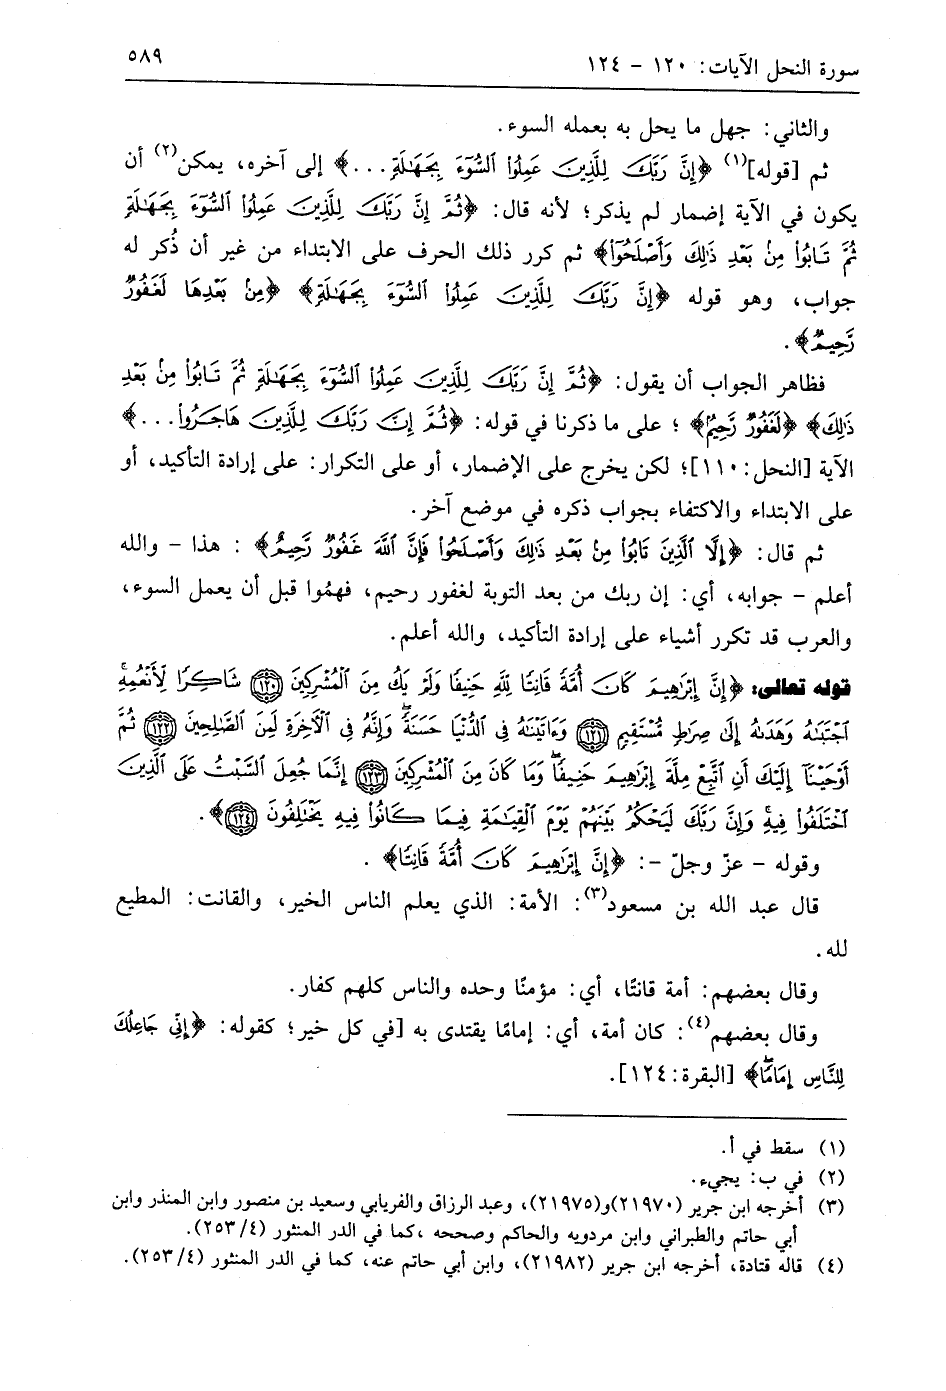 سورة النحل الآيات: ١٢٠ - ١٢٤
٥٨٩
والثاني: جهل ما يحل به بعمله السوء.
ثم [قوله](١) ﴿إِنَّ رَبَّكَ لِلَّذِينَ عَمِلُوا۟ ٱلسُّوٓءَ بِجَهَـٰلَةٍ...﴾ إلى آخره، يمكن(٢) أن
يكون في الآية إضمار لم يذكر؛ لأنه قال: ﴿ثُمَّ إِنَّ رَبَّكَ لِلَّذِينَ عَمِلُوا۟ ٱلسُّوٓءَ بِجَهَـٰلَةٍ
ثُمَّ تَابُوا۟ مِنۢ بَعْدِ ذَٰلِكَ وَأَصْلَحُوٓا۟﴾ ثم كرر ذلك الحرف على الابتداء من غير أن ذُكر له
جواب، وهو قوله ﴿إِنَّ رَبَّكَ لِلَّذِينَ عَمِلُوا۟ ٱلسُّوٓءَ بِجَهَـٰلَةٍ﴾ ﴿مِنۢ بَعْدِهَا لَغَفُورٌ
رَّحِيمٌ﴾.
فظاهر الجواب أن يقول: ﴿ثُمَّ إِنَّ رَبَّكَ لِلَّذِينَ عَمِلُوا۟ ٱلسُّوٓءَ بِجَهَـٰلَةٍ ثُمَّ تَابُوا۟ مِنۢ بَعْدِ
ذَٰلِكَ﴾ ﴿لَغَفُورٌ رَّحِيمٌ﴾ ؛ على ما ذكرنا في قوله: ﴿ثُمَّ إِنَّ رَبَّكَ لِلَّذِينَ هَاجَرُوا۟...﴾
الآية [النحل: ١١٠]؛ لكن يخرج على الإضمار، أو على التكرار: على إرادة التأكيد، أو
على الابتداء والاكتفاء بجواب ذكره في موضع آخر.
ثم قال: ﴿إِلَّا ٱلَّذِينَ تَابُوا۟ مِنۢ بَعْدِ ذَٰلِكَ وَأَصْلَحُوا۟ فَإِنَّ ٱللَّهَ غَفُورٌ رَّحِيمٌ﴾ : هذا - والله
أعلم - جوابه، أي: إن ربك من بعد التوبة لغفور رحيم، فهمُوا قبل أن يعمل السوء،
والعرب قد تكرر أشياء على إرادة التأكيد، والله أعلم.
قوله تعالى: ﴿إِنَّ إِبْرَٰهِيمَ كَانَ أُمَّةً قَانِتًا لِّلَّهِ حَنِيفًا وَلَمْ يَكُ مِنَ ٱلْمُشْرِكِينَ ۝١٢٠ شَاكِرًا لِّأَنْعُمِهِ ۚ
ٱجْتَبَىٰهُ وَهَدَىٰهُ إِلَىٰ صِرَٰطٍ مُّسْتَقِيمٍ ۝١٢١ وَءَاتَيْنَـٰهُ فِى ٱلدُّنْيَا حَسَنَةً ۖ وَإِنَّهُۥ فِى ٱلْـَٔاخِرَةِ لَمِنَ ٱلصَّـٰلِحِينَ ۝١٢٢ ثُمَّ
أَوْحَيْنَآ إِلَيْكَ أَنِ ٱتَّبِعْ مِلَّةَ إِبْرَٰهِيمَ حَنِيفًا ۖ وَمَا كَانَ مِنَ ٱلْمُشْرِكِينَ ۝١٢٣ إِنَّمَا جُعِلَ ٱلسَّبْتُ عَلَى ٱلَّذِينَ
ٱخْتَلَفُوا۟ فِيهِ ۚ وَإِنَّ رَبَّكَ لَيَحْكُمُ بَيْنَهُمْ يَوْمَ ٱلْقِيَـٰمَةِ فِيمَا كَانُوا۟ فِيهِ يَخْتَلِفُونَ ۝١٢٤﴾.
وقوله - عزّ وجلّ -: ﴿إِنَّ إِبْرَٰهِيمَ كَانَ أُمَّةً قَانِتًا﴾ .
قال عبد الله بن مسعود(٣): الأمة: الذي يعلم الناس الخير، والقانت: المطيع
لله.
وقال بعضهم: أمة قانتًا، أي: مؤمنًا وحده والناس كلهم كفار.
وقال بعضهم(٤): كان أمة، أي: إمامًا يقتدى به [في كل خير؛ كقوله: ﴿إِنِّى جَاعِلُكَ
لِلنَّاسِ إِمَامًا ۖ﴾ [البقرة: ١٢٤].
(١) سقط في أ.
(٢) في ب: يجيء.
(٣) أخرجه ابن جرير (٢١٩٧٠)و(٢١٩٧٥)، وعبد الرزاق والفريابي وسعيد بن منصور وابن المنذر وابن
أبي حاتم والطبراني وابن مردويه والحاكم وصححه ،كما في الدر المنثور (٢٥٣/٤).
(٤) قاله قتادة، أخرجه ابن جرير (٢١٩٨٢)، وابن أبي حاتم عنه، كما في الدر المنثور (٢٥٣/٤).